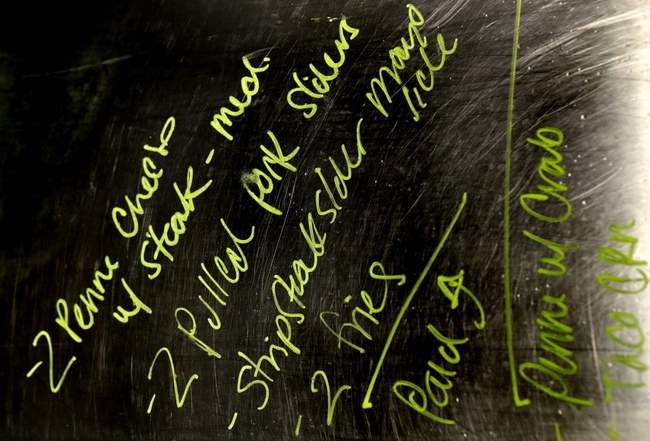 -2 Penne Cheese
w/ Steak - med.
-2 Pulled pork Sliders
- Stripsteak slider Mayo
side
-2 fries
Paid
- Penne w/ Crab
- Taco